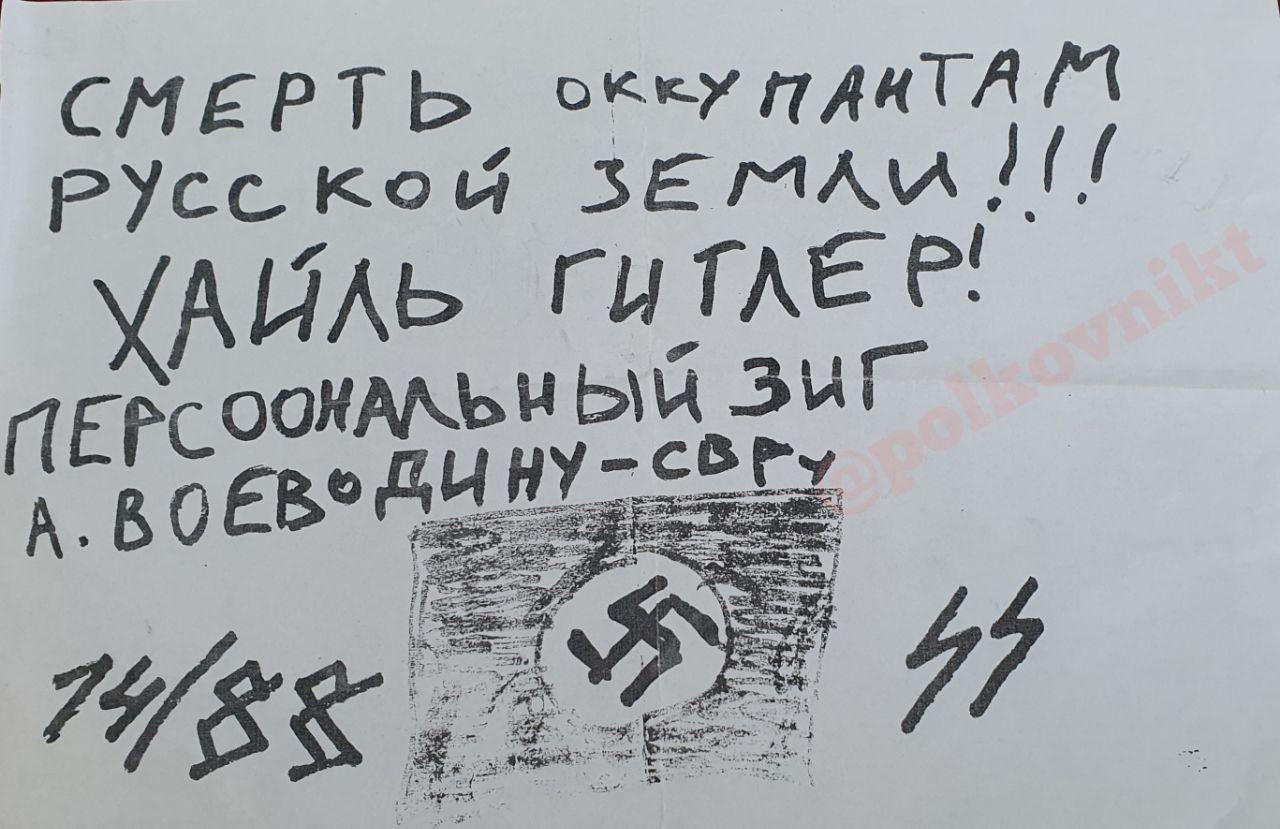 СМЕРТЬ ОККУПАНТАМ
РУССКОЙ ЗЕМЛИ!!!
ХАЙЛЬ ГИТЛЕР!
ПЕРСООНАЛЬНЫЙ ЗИГ
А. ВОЕВОДИНУ-СВРУ
14/88
SS
@polkovnikt